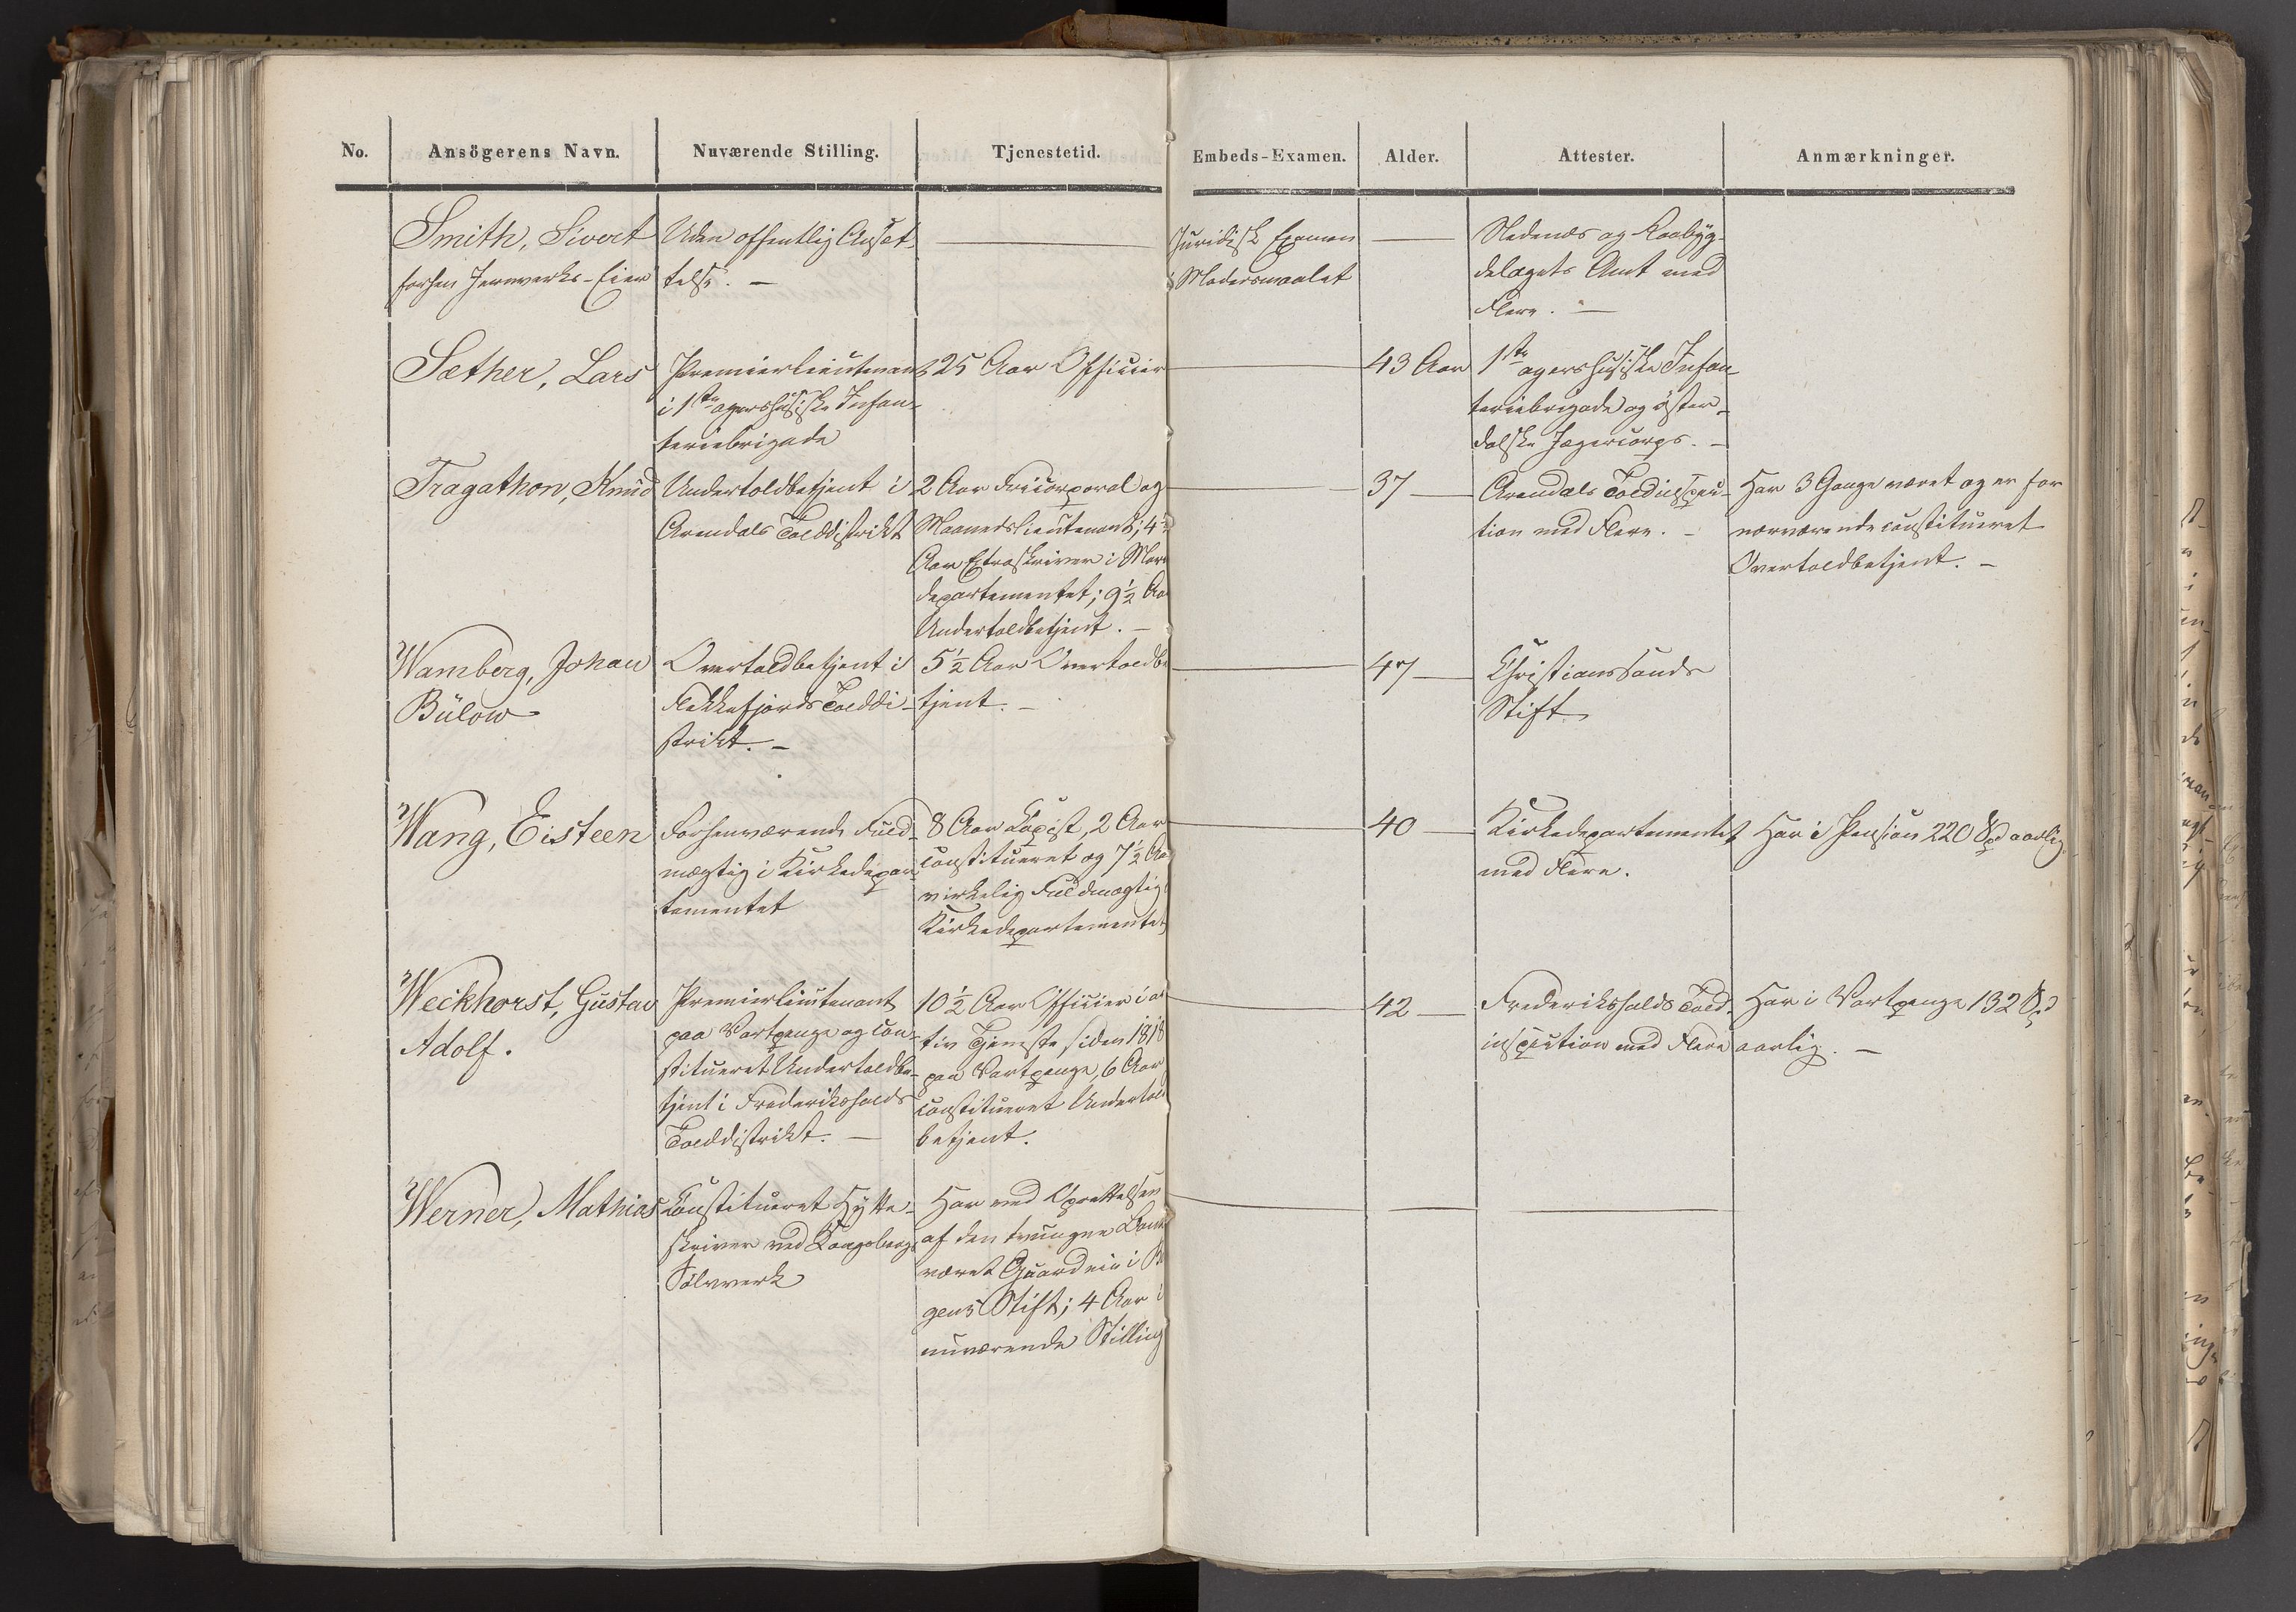 No. Ansögerens Navn. Nuværende Stilling. Tjenestetid. Embeds-Examen. Alder. Attester. Anmærkninger.
Smith, Sivert
forhen Jernværks-Eier
Uden offentlig Ansæt-
telse. —
—
Juridisk Examen
i Modersmaalet
—
Nedenæs og Raabyg-
delagets Amt med
Flere. —
Sæther, Lars
Premierlieutenant
i 1ste agershusiske Infan-
teriebrigade
25 Aar Officier
—
43 Aar
1ste agershusiske Infan-
teriebrigade og öster-
dalske Jægercorps. —
Tragathon, Knud
Undertoldbetjent i
Arendals Tolddistrikt
2 Aar Fricorporal og
Maanedslieutenant; 4½
Aar Extraskriver i Mar
departementet; 9½ Aa
Undertoldbetjent. —
—
37 —
Arendals Toldinspec-
tion med Flere. —
Har 3 Gange været og er for
nærværende constitueret
Overtoldbetjent. —
Wamberg, Johan
Bülow
Overtoldbetjent i
Flekkefjords Tolddi-
strikt. —
5½ Aar Overtoldbe
tjent. —
—
47 —
Christianssands
Stift
Wang, Eisteen
Forhenværende Fuld-
mægtig i Kirkedepar-
tementet
8 Aar Copist, 2 Aar
constitueret og 7½ Aa
virkelig Fuldmægtig i
Kirkedepartementet
—
40 —
Kirkedepartementet
med Flere.
Har i Pension 220 Spd aarlig.
Weickhorst, Gustav
Adolf.
Premierlieutenant
paa Vartpenge og con-
stitueret Undertoldbe-
tjent i Frederikshalds
Tolddistrikt. —
10½ Aar Officier i ac
tiv Tjeneste, siden 1818
paa Vartpenge, 6 Aar
constitueret Undertold
betjent.
—
42 —
Frederikshalds Told-
inspection med Flere
Har i Vartpenge 132 Spd
aarlig. —
Werner, Mathias
Constitueret Hytte-
skriver ved Kongsbergs
Sölvværk
Har ved Oprettelsen
af den tvungne Bank
været Guardein i Be
gens Stift; 4 Aar i
nuværende Stilling
— — —